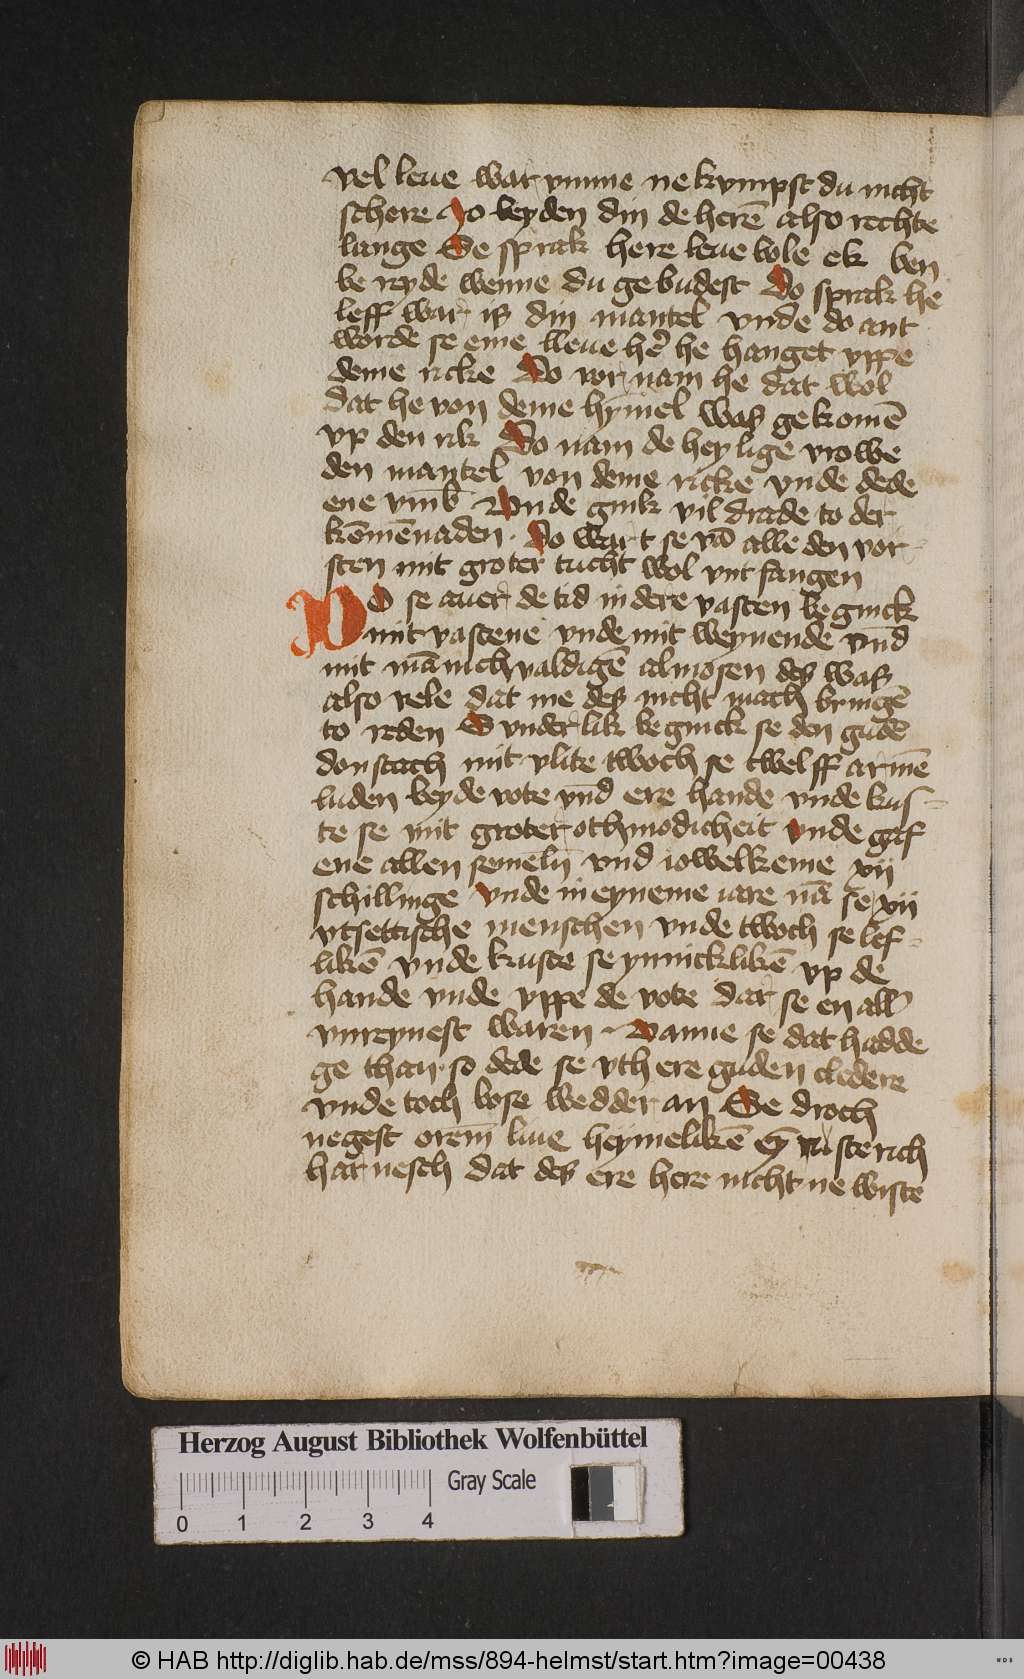 vel leue war vmme ne kvmpst du nicht
schere Jo beyden din de herē also rechte
lange Se sprak here leue bole ek ben
be reyde wenne du ge budest Do sprak he
leff war is din mantel vnde do ant
worde se eme lleue hē he hanget vppe
deme ricke Do vor nam he dat wol
dat he von deme hymel was ge komē
vp den rik Do nam de hey lige vrowe
den mantel von deme ricke vnde dede
ene vmb Vnde gink vil drade to der
kēmēnaden · Do wart se vā alle den vor
sten mit groter tucht wol vnt fangen
DO se auer de tid in dere vasten be ginck
mit vastene vnde mit weynende vnd
mit mānich valdigē almosen des was
also vele dat me des nicht mach bringē
to reden Sunder lik be ginck se den gudē
donstach mit vlite twoch se twelff armē
luden beyde vote vnd ere hande vnde kus-
te se mit groter othmodicheit vnde gaf
ene allen semeln vnd iowelkeme xij
schillinge vnde in eyneme iare nā se xij
vtsettische menschen vnde twoch se lef-
likē vnde kuste se ynnicklikē vp de
hande vnde vppe de vote dar se en all'
vnreynest waren · Wanne se dat hadde
ge than · so dede se vth ere guden cledere
vnde toch bose wedder an Se droch
negest orem liue heymelikē ey sterich
harnesch dat des ere here nicht ne wiste
Herzog August Bibliothek Wolfenbüttel
Gray Scale
0 1 2 3 4
© HAB http://diglib.hab.de/mss/894-helmst/start.htm?image=00438